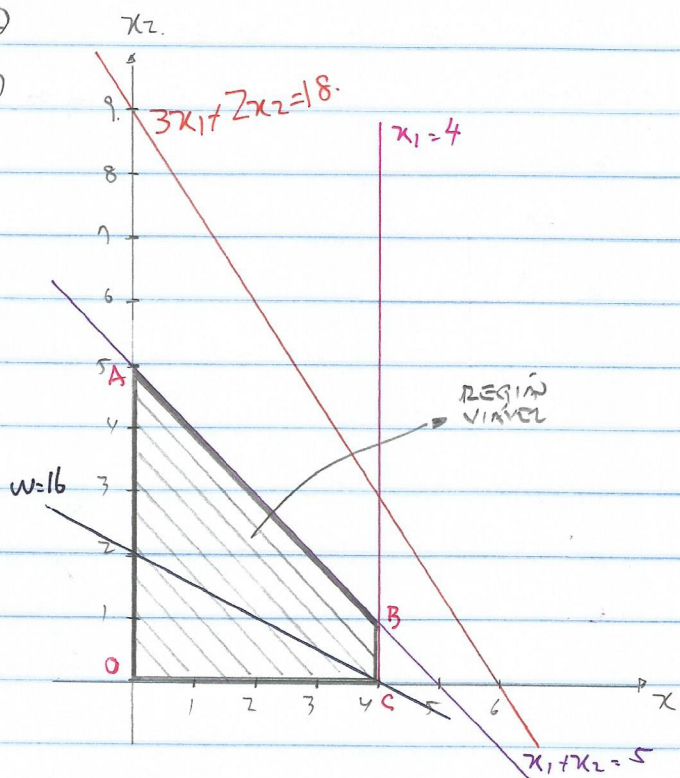 x2.
9
3x1+2x2=18.
x1=4
8
7
6
5
A
REGIÃN
VIÁVEL
4
W=16
3
2
1
B
0
1
2
3
4
C
5
6
x
x1+x2=5